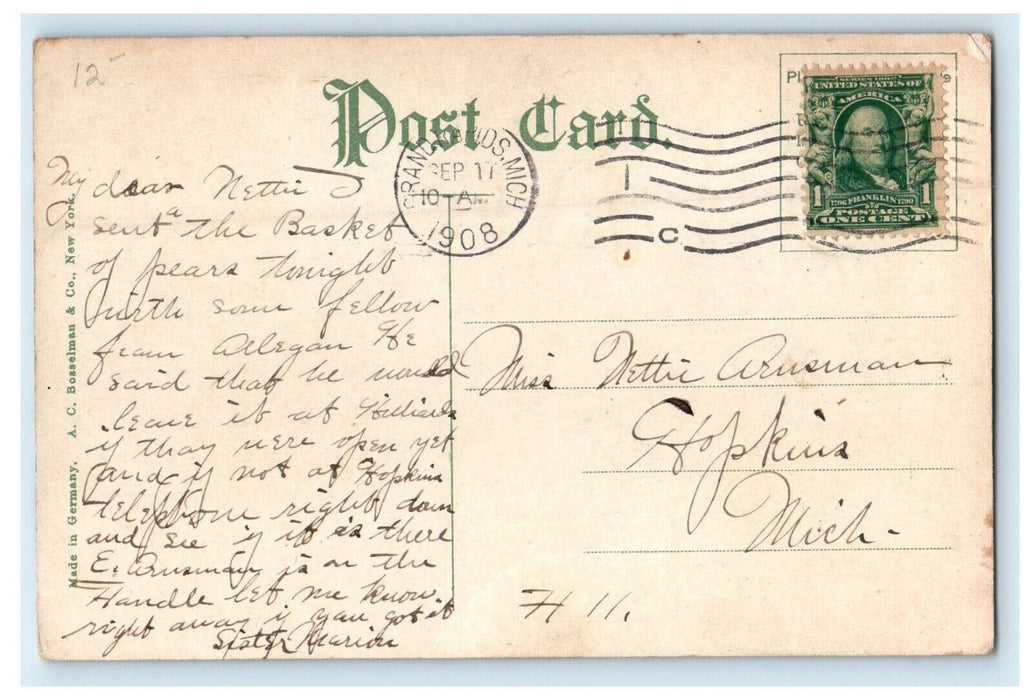 12
Post Card.
GRAND RAPIDS, MICH
SEP 17
10-AM
1908
C
SERIES 1902
UNITED STATES OF
AMERICA
1 1
1706 FRANKLIN 1790
POSTAGE
ONE CENT
Made in Germany. A. C. Bosselman & Co., New York.
My dear Nettie I
sent a the Basket
of pears tonight
with some fellow
from Alegan He
said that he would
leave it at Hilliards
if thay were open yet
and if not at Hopkins
telephone right down
and see if it is there
E. Arnsman is on the
Handle let me know
right away if you got it
Sister Marion
Miss Nettie Arnsman
Hopkins
Mich-
H 11.